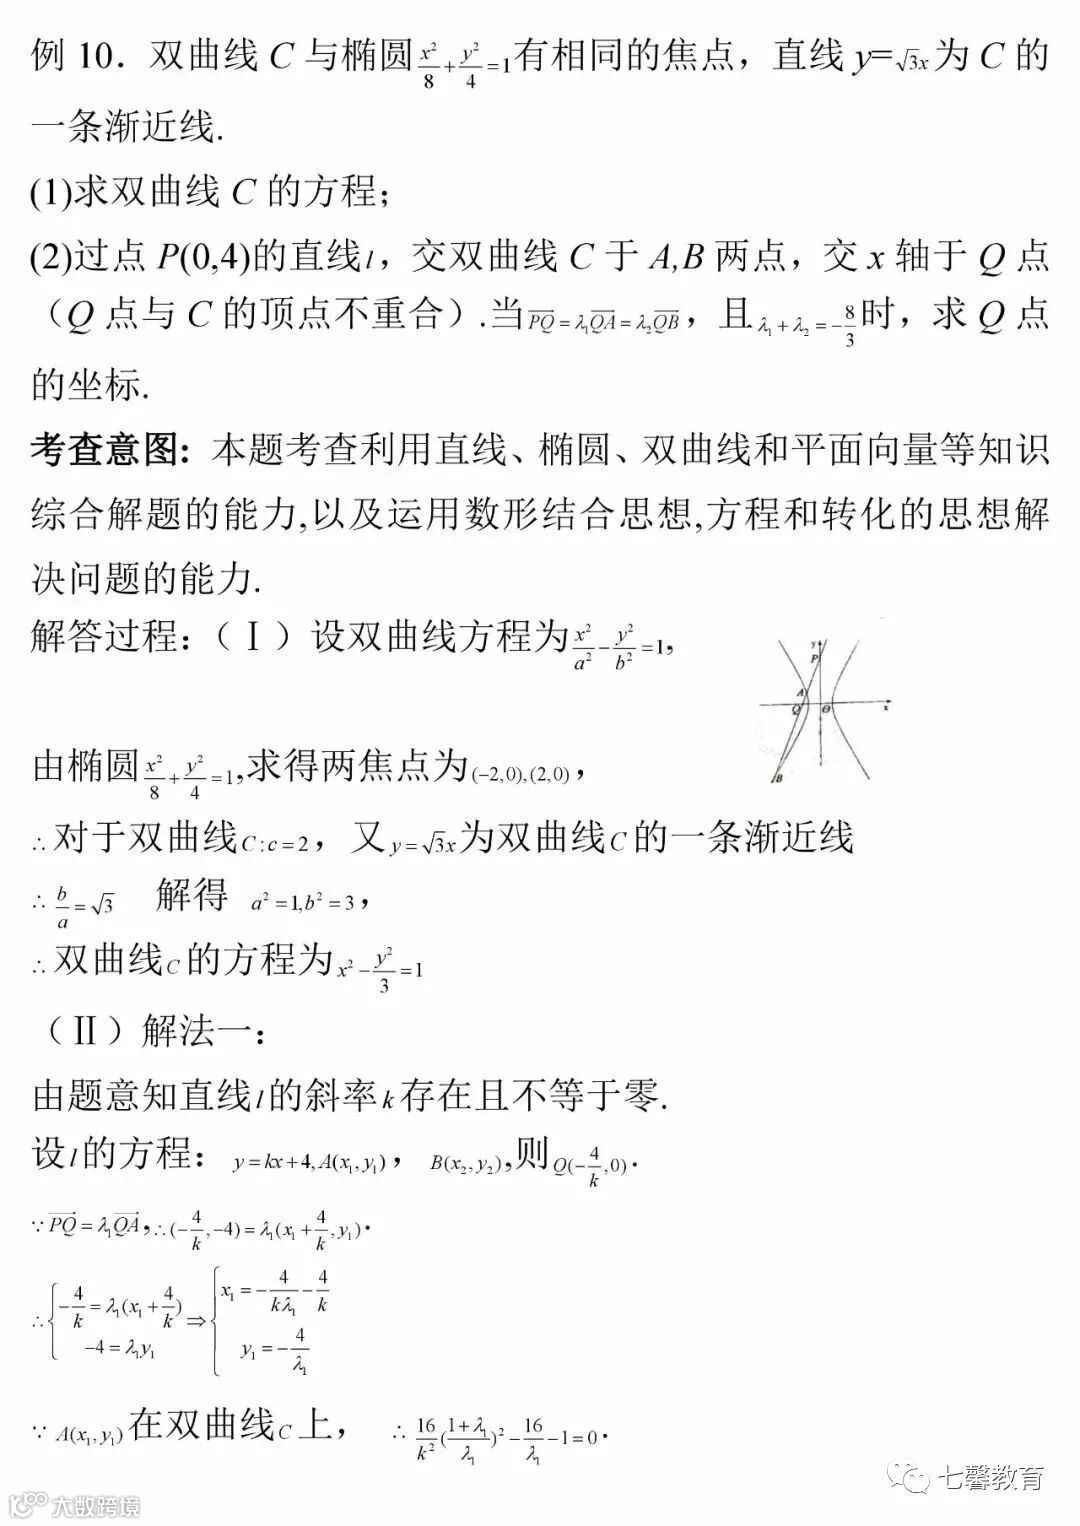 例 10. 双曲线 C 与椭圆 x²/8 + y²/4 = 1 有相同的焦点，直线 y=√3x 为 C 的
一条渐近线.
(1)求双曲线 C 的方程；
(2)过点 P(0,4)的直线 l，交双曲线 C 于 A,B 两点，交 x 轴于 Q 点
（Q 点与 C 的顶点不重合）.当 PQ→ = λ₁QA→ = λ₂QB→，且 λ₁ + λ₂ = −8/3 时，求 Q 点
的坐标.
考查意图: 本题考查利用直线、椭圆、双曲线和平面向量等知识
综合解题的能力,以及运用数形结合思想,方程和转化的思想解
决问题的能力.
解答过程：（Ⅰ）设双曲线方程为 x²/a² − y²/b² = 1,
y
P
A
Q
O
x
B
由椭圆 x²/8 + y²/4 = 1,求得两焦点为 (−2,0),(2,0)，
∴对于双曲线 C:c=2，又 y=√3x 为双曲线 C 的一条渐近线
∴ b/a = √3 解得 a² = 1,b² = 3，
∴双曲线 C 的方程为 x² − y²/3 = 1
（Ⅱ）解法一：
由题意知直线 l 的斜率 k 存在且不等于零.
设 l 的方程：y = kx + 4, A(x₁, y₁)，B(x₂, y₂),则 Q(−4/k, 0).
∵ PQ→ = λ₁QA→，∴(−4/k, −4) = λ₁(x₁ + 4/k, y₁).
∴ { −4/k = λ₁(x₁ + 4/k) −4 = λ₁y₁ ⇒ { x₁ = −4/(kλ₁) − 4/k y₁ = −4/λ₁
∵ A(x₁, y₁) 在双曲线 C 上， ∴ 16/k² ((1+λ₁)/λ₁)² − 16/λ₁ − 1 = 0.
七馨教育
大数跨境